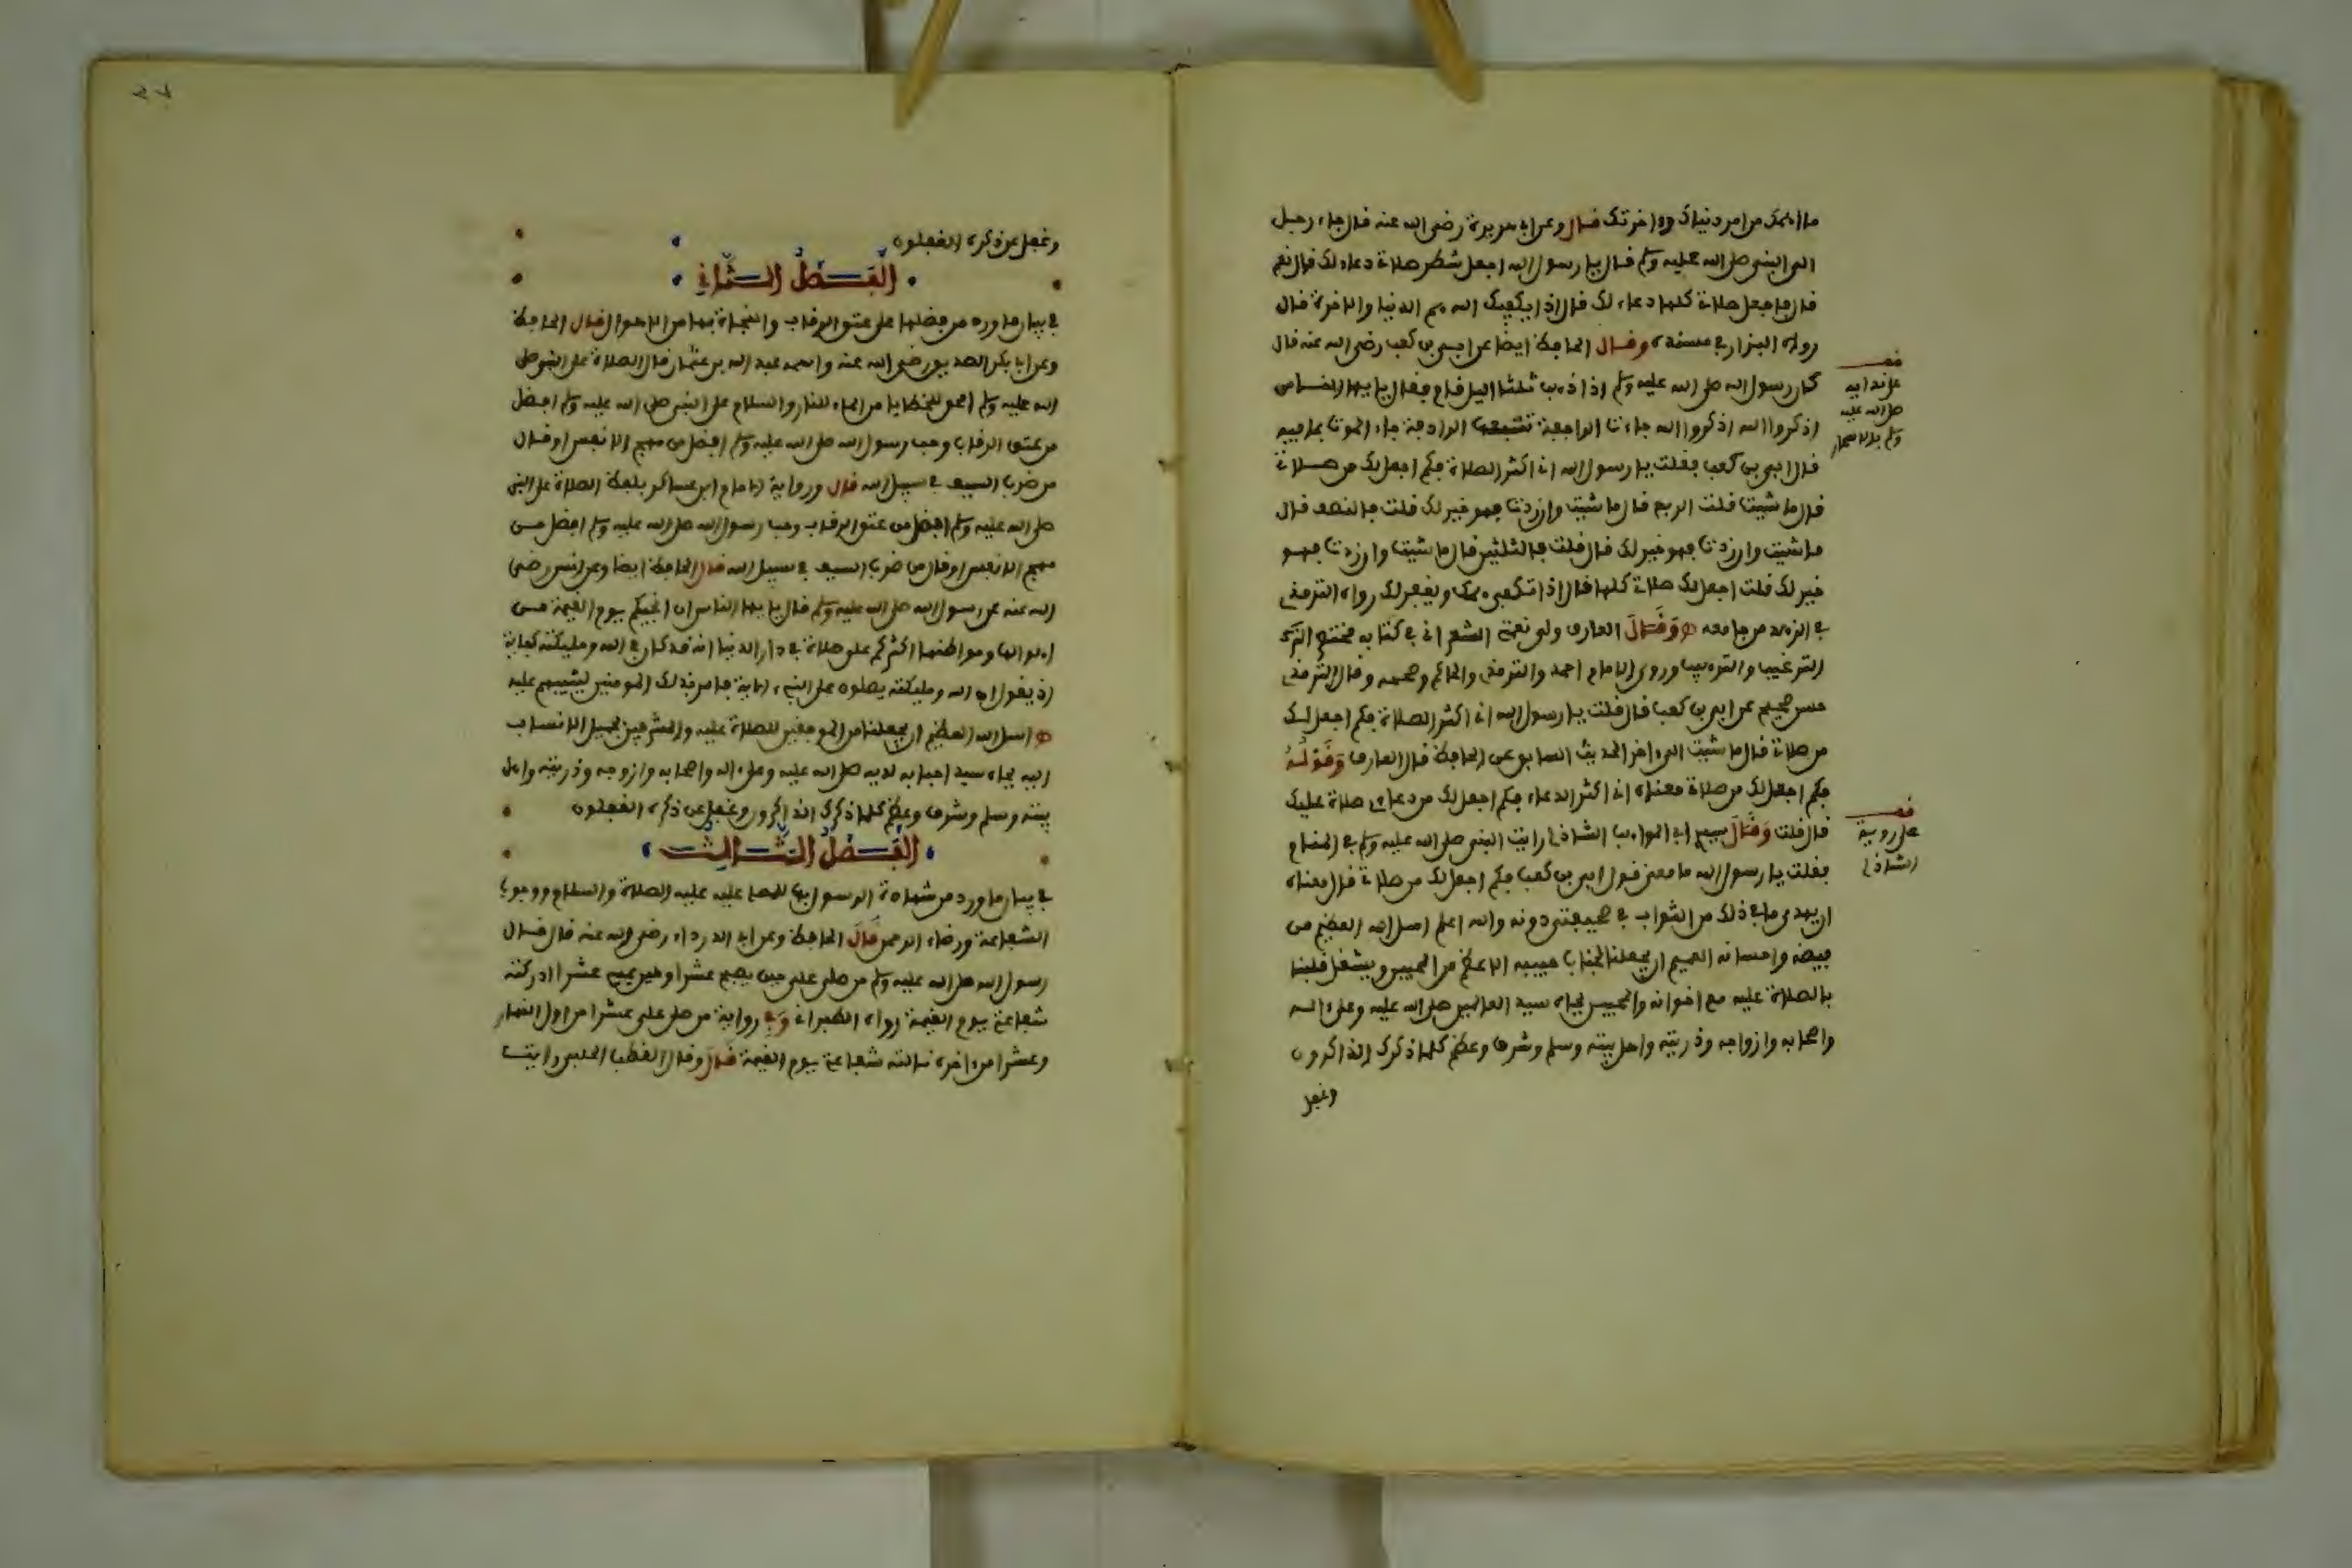 ما اهمك من امر دنياك واخرتك قال وعن ابي هريرة رضي الله عنه قال جاء رجل
الى النبي صلى الله عليه وسلم فقال يا رسول الله اجعل شطر صلاتي دعاء لك قال نعم
قال فاجعل صلاتي كلها دعاء لك قال اذا يكفيك الله هم الدنيا والاخرة قال
رواه البزار في مسنده وقال الحافظ ايضا عن ابي بن كعب رضي الله عنه قال
كان رسول الله صلى الله عليه وسلم اذا ذهب ثلثا اليل قام فقال يا يها الناس
اذكروا الله اذكروا الله جاءت الراجفة تتبعها الرادفة جاء الموت بما فيه
قال ابي بن كعب فقلت يا رسول الله اني اكثر الصلاة فكم اجعل لك من صلاتي
قال ما شيت قلت الربع قال ما شيت وان زدت فهو خير لك قلت فالنصف قال
ما شيت وان زدت فهو خير لك قال قلت فالثلثين قال ما شيت وان زدت فهو
خير لك قلت اجعل لك صلاتي كلها قال اذا تكفى همك ويغفر لك رواه الترمذي
في الزهد من جامعه وقال العارف ولي نعمتي الشعراني في كتابه مختصر
الترغيب والترهيب وروى الامام احمد والترمذي والحاكم وصححه وقال الترمذي
حسن صحيح عن ابي بن كعب قال قلت يا رسول الله اني اكثر الصلاة فكم اجعل لك
من صلاتي قال ما شيت الى اخر الحديث السابق عن الحافظ قال العارف وقوله
فكم اجعل لك من صلاتي معناه اني اكثر الدعاء فكم اجعل لك من دعاءي صلاة عليك
قال قلت وقال ابي المواهب الشاذلي رايت النبي صلى الله عليه وسلم في المنام
فقلت يا رسول الله ما معنى قول ابي بن كعب فكم اجعل لك من صلاتي قال معناه
ان يهدي ما في ذلك من الثواب في صحيفتي دونه والله اعلم اسل الله العظيم من
فيضه واحسانه العميم ان يجعلنا لجناب حبيبه الاعظم من المحبين ويشغل قلبنا
بالصلاة عليه مع اخوانه والمحبين بجاه سيد العالمين صلى الله عليه وعلى اله
واصحابه وازواجه وذريته واهل بيته وسلم وشرف وعظم كلما ذكرك الذاكرون
وغفل
على ندايه
صلى الله عليه
وسلم بالاسحار
على روية
الشاذلي
وغفل عن ذكره الغفلون
الفصل الثاني
في بيان ما ورد من فضلها على عتق الرقاب والنجاة بها من الاهوال قال الحافظ
وعن ابي بكر الصديق رضي الله عنه واسمه عبد الله بن عثمان قال الصلاة على النبي صلى
الله عليه وسلم امحق للخطايا من الماء للنار والسلام على النبي صلى الله عليه وسلم افضل
من عتق الرقاب وحب رسول الله صلى الله عليه وسلم افضل من مهج الانفس او قال
من ضرب السيف في سبيل الله قال ورواية الامام ابن عساكر بلفظ الصلاة على النبي
صلى الله عليه وسلم افضل من عتق الرقاب وحب رسول الله صلى الله عليه وسلم افضل من
مهج الانفس او قال من ضرب السيف في سبيل الله قال الحافظ ايضا وعن انس رضي
الله عنه عن رسول الله صلى الله عليه وسلم قال يا يها الناس ان انجيكم يوم القيمة من
اهوالها ومواطنها اكثركم علي صلاة في دار الدنيا انه قد كان في الله ومليكته كفاية
اذ يقول ان الله ومليكته يصلون على النبيء الاية فامر بذلك المومنين ليثيبهم عليه
اسل الله العظيم ان يجعلنا من الموفقين للصلاة عليه والمشرفين بجميل الانتساب
اليه بجاه سيد احبابه لديه صلى الله عليه وعلى اله واصحابه وازوجه وذريته واهل
بيته وسلم وشرف وعظم كلما ذكرك الذاكرون وغفل عن ذكره الغفلون
الفصل الثالث
في بيان ما ورد من شهادة الرسول بها للمصلي عليه عليه الصلاة والسلام ووجوب
الشفاعة ورضاء الرحمن قال الحافظ وعن ابي الدرداء رضي الله عنه قال قال
رسول الله صلى الله عليه وسلم من صلى علي حين يصبح عشرا وحين يمسي عشرا ادركته
شفاعتي يوم القيمة رواه الطبراني وفي رواية من صلى علي عشرا من اول النهار
وعشرا من اخره نالته شفاعتي يوم القيمة قال وقال القطب الحلبي رايت